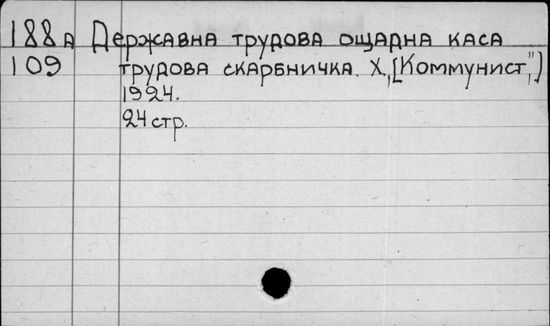 188 А Державна трудова ощадна каса
109 трудова скарбничка. Х., [„Коммунист"]
1924.
24 стр.